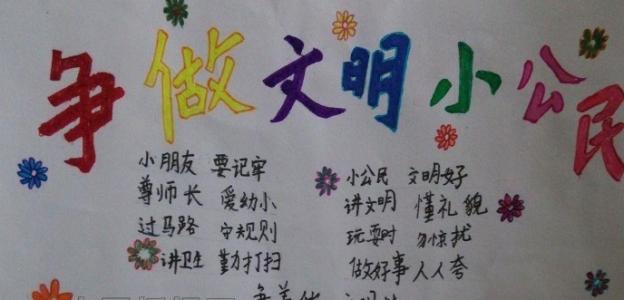 争做文明小公民
小朋友 要记牢
尊师长 爱幼小
过马路 守规则
讲卫生 勤打扫
小公民 文明好
讲文明 懂礼貌
玩耍时 勿惊扰
做好事 人人夸